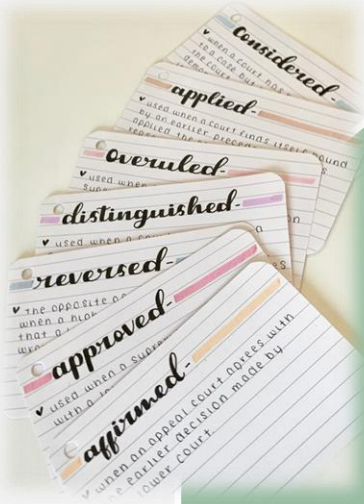 Considered-
when a court has
to a case but
applied-
used when a court finds itself bound
by an earlier
applied the
Overuled-
used when
distinguished-
used when a
reversed-
the opposite
when a
that a
approved-
used when a
with a
affirmed-
when an appeal court agrees with
the earlier decision made by
lower court.